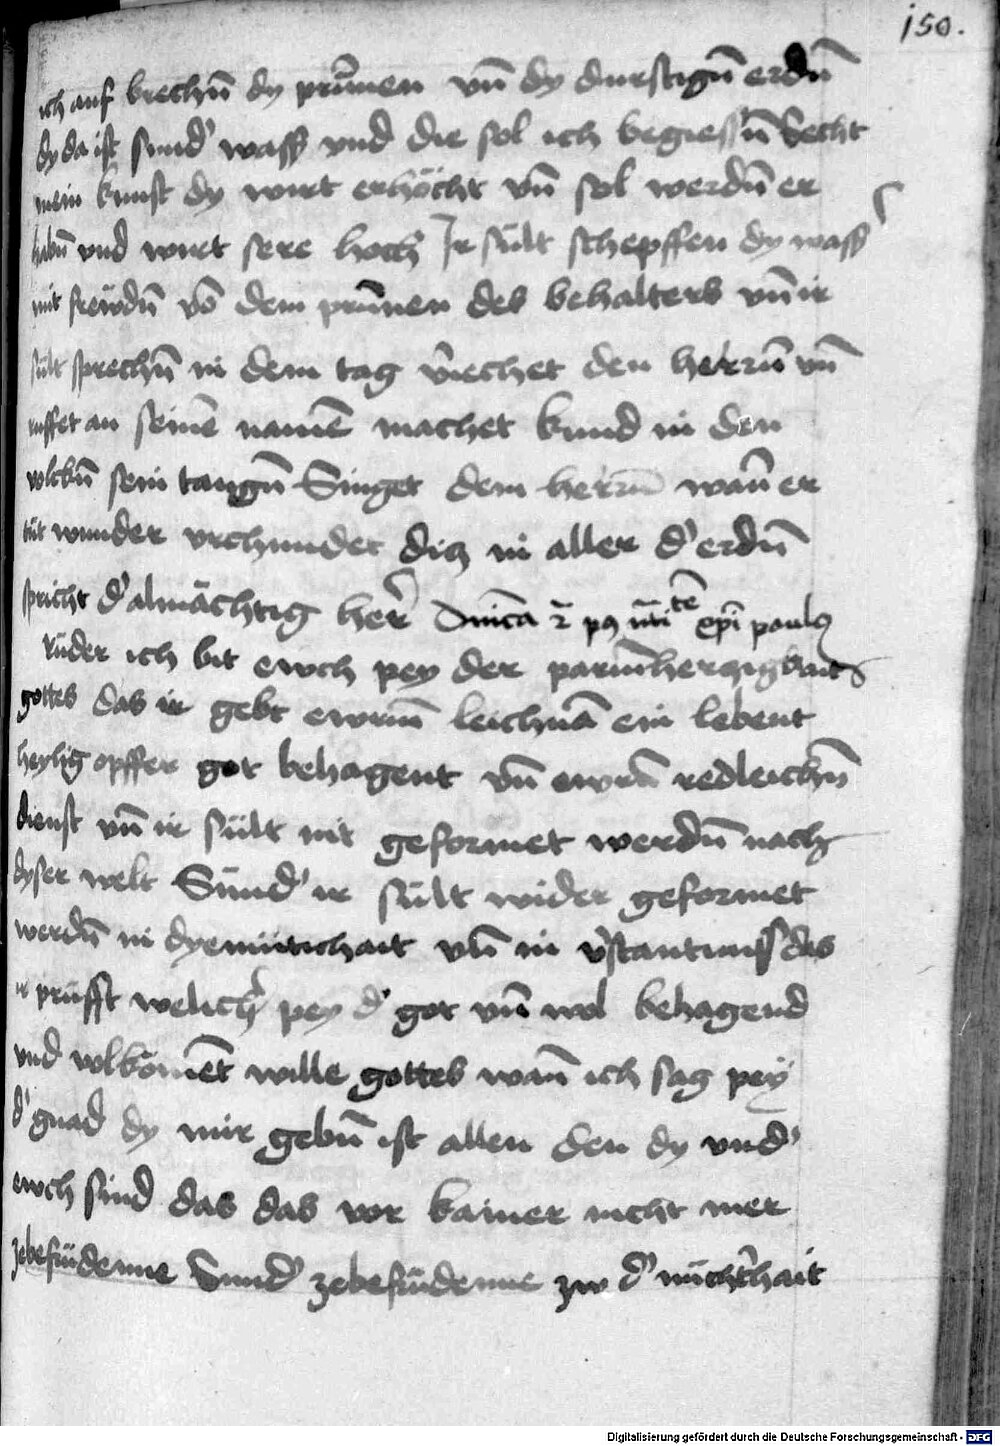 150.
ich auf brechn̄ dy prūnen vn̄ dy durstign̄ erdn̄
dy da ist sund' wass vnd die sol ich begiessn̄ Secht
mein kunst dy wirt erhöcht vn̄ sol werdn̄ er
habn̄ vnd wirt sere hoch Ir sült schepffen dy wass
mit frewdn̄ vō dem prūnen des behalters vn̄ ir
sült sprechn̄ in dem tag v̄iechet den herrn̄ vn̄
ruffet an seinē namē machet kund in den
volckn̄ sein taugn̄ Singet dem herrn̄ wan̄ er
tüt wunder vrchundet dicz in aller d' erdn̄
spricht d' almächtig her̄ Dn̄ica epi paulꝰ
rüder ich bit ewch pey der parmherczigkait
gottes das ir gebt ewrn̄ leichnā ein lebent
heylig opffer got behagent vn̄ ewrn̄ redleichn̄
dienst vn̄ ir sült nit geformet werdn̄ nach
dyser welt Sünd' ir sült wider geformet
werdn̄ in dyemütichait vn̄ in v̄stantnuss das
ir prüfft welich' pey d' got vn̄ wol behagend
vnd volkömēt wille gottes wan̄ ich sag pey
d' gnad dy mir gebn̄ ist allen den dy vnd'
ewch sind das das vor kainer nicht mer
zebefindenne Sund' zebefindenne zw d' nücht'hait
Digitalisierung gefördert durch die Deutsche Forschungsgemeinschaft - DFG